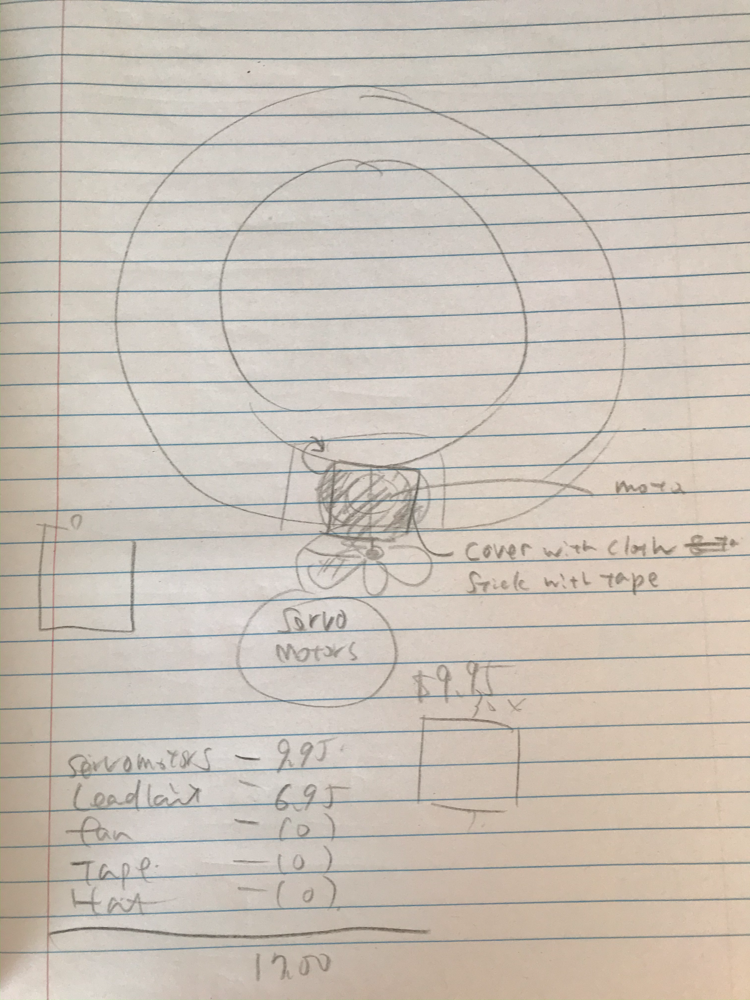 mota
cover with cloth
stick with tape
Servo
Motors
$9.95
Servomotors - 9.95
- 6.95
fan - (0)
Tape - (0)
Hat - (0)